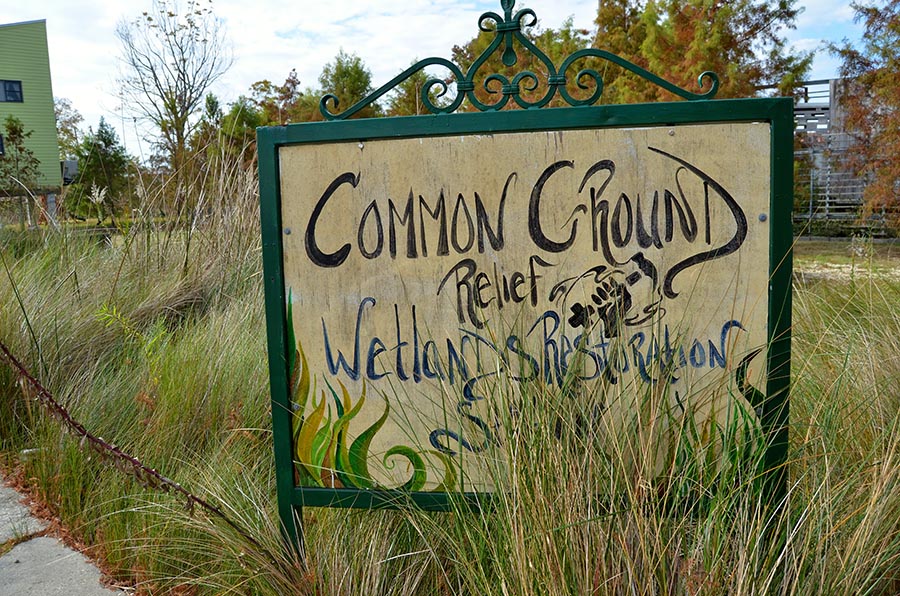 Common Ground
Relief
Wetlands Restoration